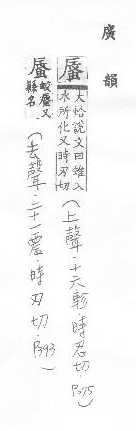 廣韻
蜃 大蛤說文曰雉入
水所化又時刃切
(上聲·十六軫·時忍切 P275)
蜃 蛟蜃又
縣名
(去聲·二十一震·時刃切·P393)